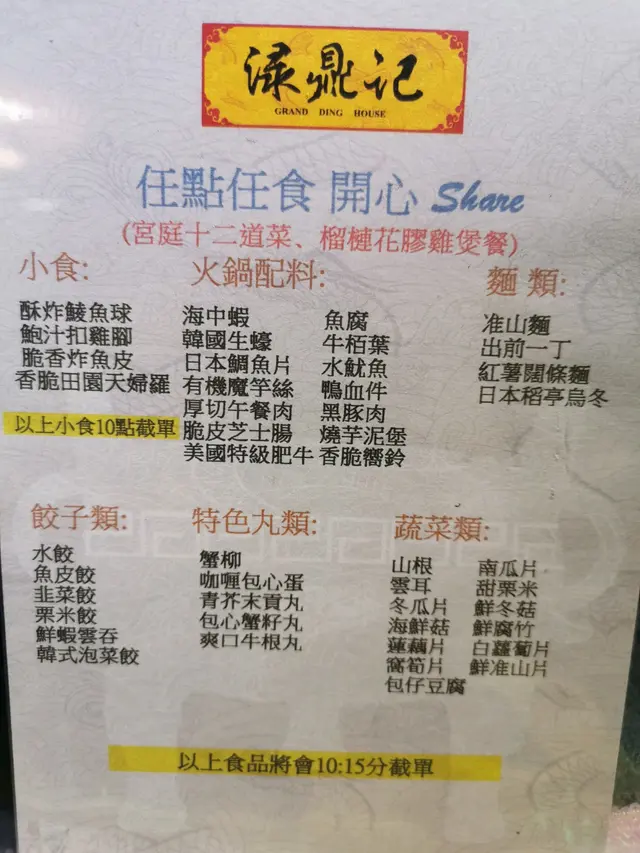 渌鼎记
GRAND DING HOUSE
任點任食 開心 Share
(宮庭十二道菜、榴槤花膠雞煲餐)
小食:
酥炸鯪魚球
鮑汁扣雞腳
脆香炸魚皮
香脆田園天婦羅
以上小食10點截單
火鍋配料:
海中蝦
韓國生蠔
日本鯛魚片
有機魔竽絲
厚切午餐肉
脆皮芝士腸
美國特級肥牛
魚腐
牛栢葉
水魷魚
鴨血件
黑豚肉
燒芋泥堡
香脆嚮鈴
麵類:
准山麵
出前一丁
紅薯闊條麵
日本稻亭烏冬
餃子類:
水餃
魚皮餃
韭菜餃
栗米餃
鮮蝦雲吞
韓式泡菜餃
特色丸類:
蟹柳
咖喱包心蛋
青芥末貢丸
包心蟹籽丸
爽口牛根丸
蔬菜類:
山根
雲耳
冬瓜片
海鮮菇
蓮藕片
窩筍片
包仔豆腐
南瓜片
甜栗米
鮮冬菇
鮮腐竹
白蘿蔔片
鮮准山片
以上食品將會10:15分截單